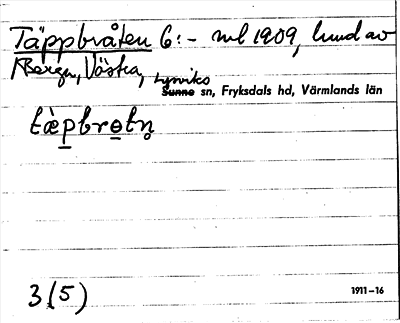 Täppbråten 6:- ml 1909, lund av
Berga, Västra,
Lysviks
Sunne sn, Fryksdals hd, Värmlands län
tæ̀pbrɵtn̥
3(5)
1911-16